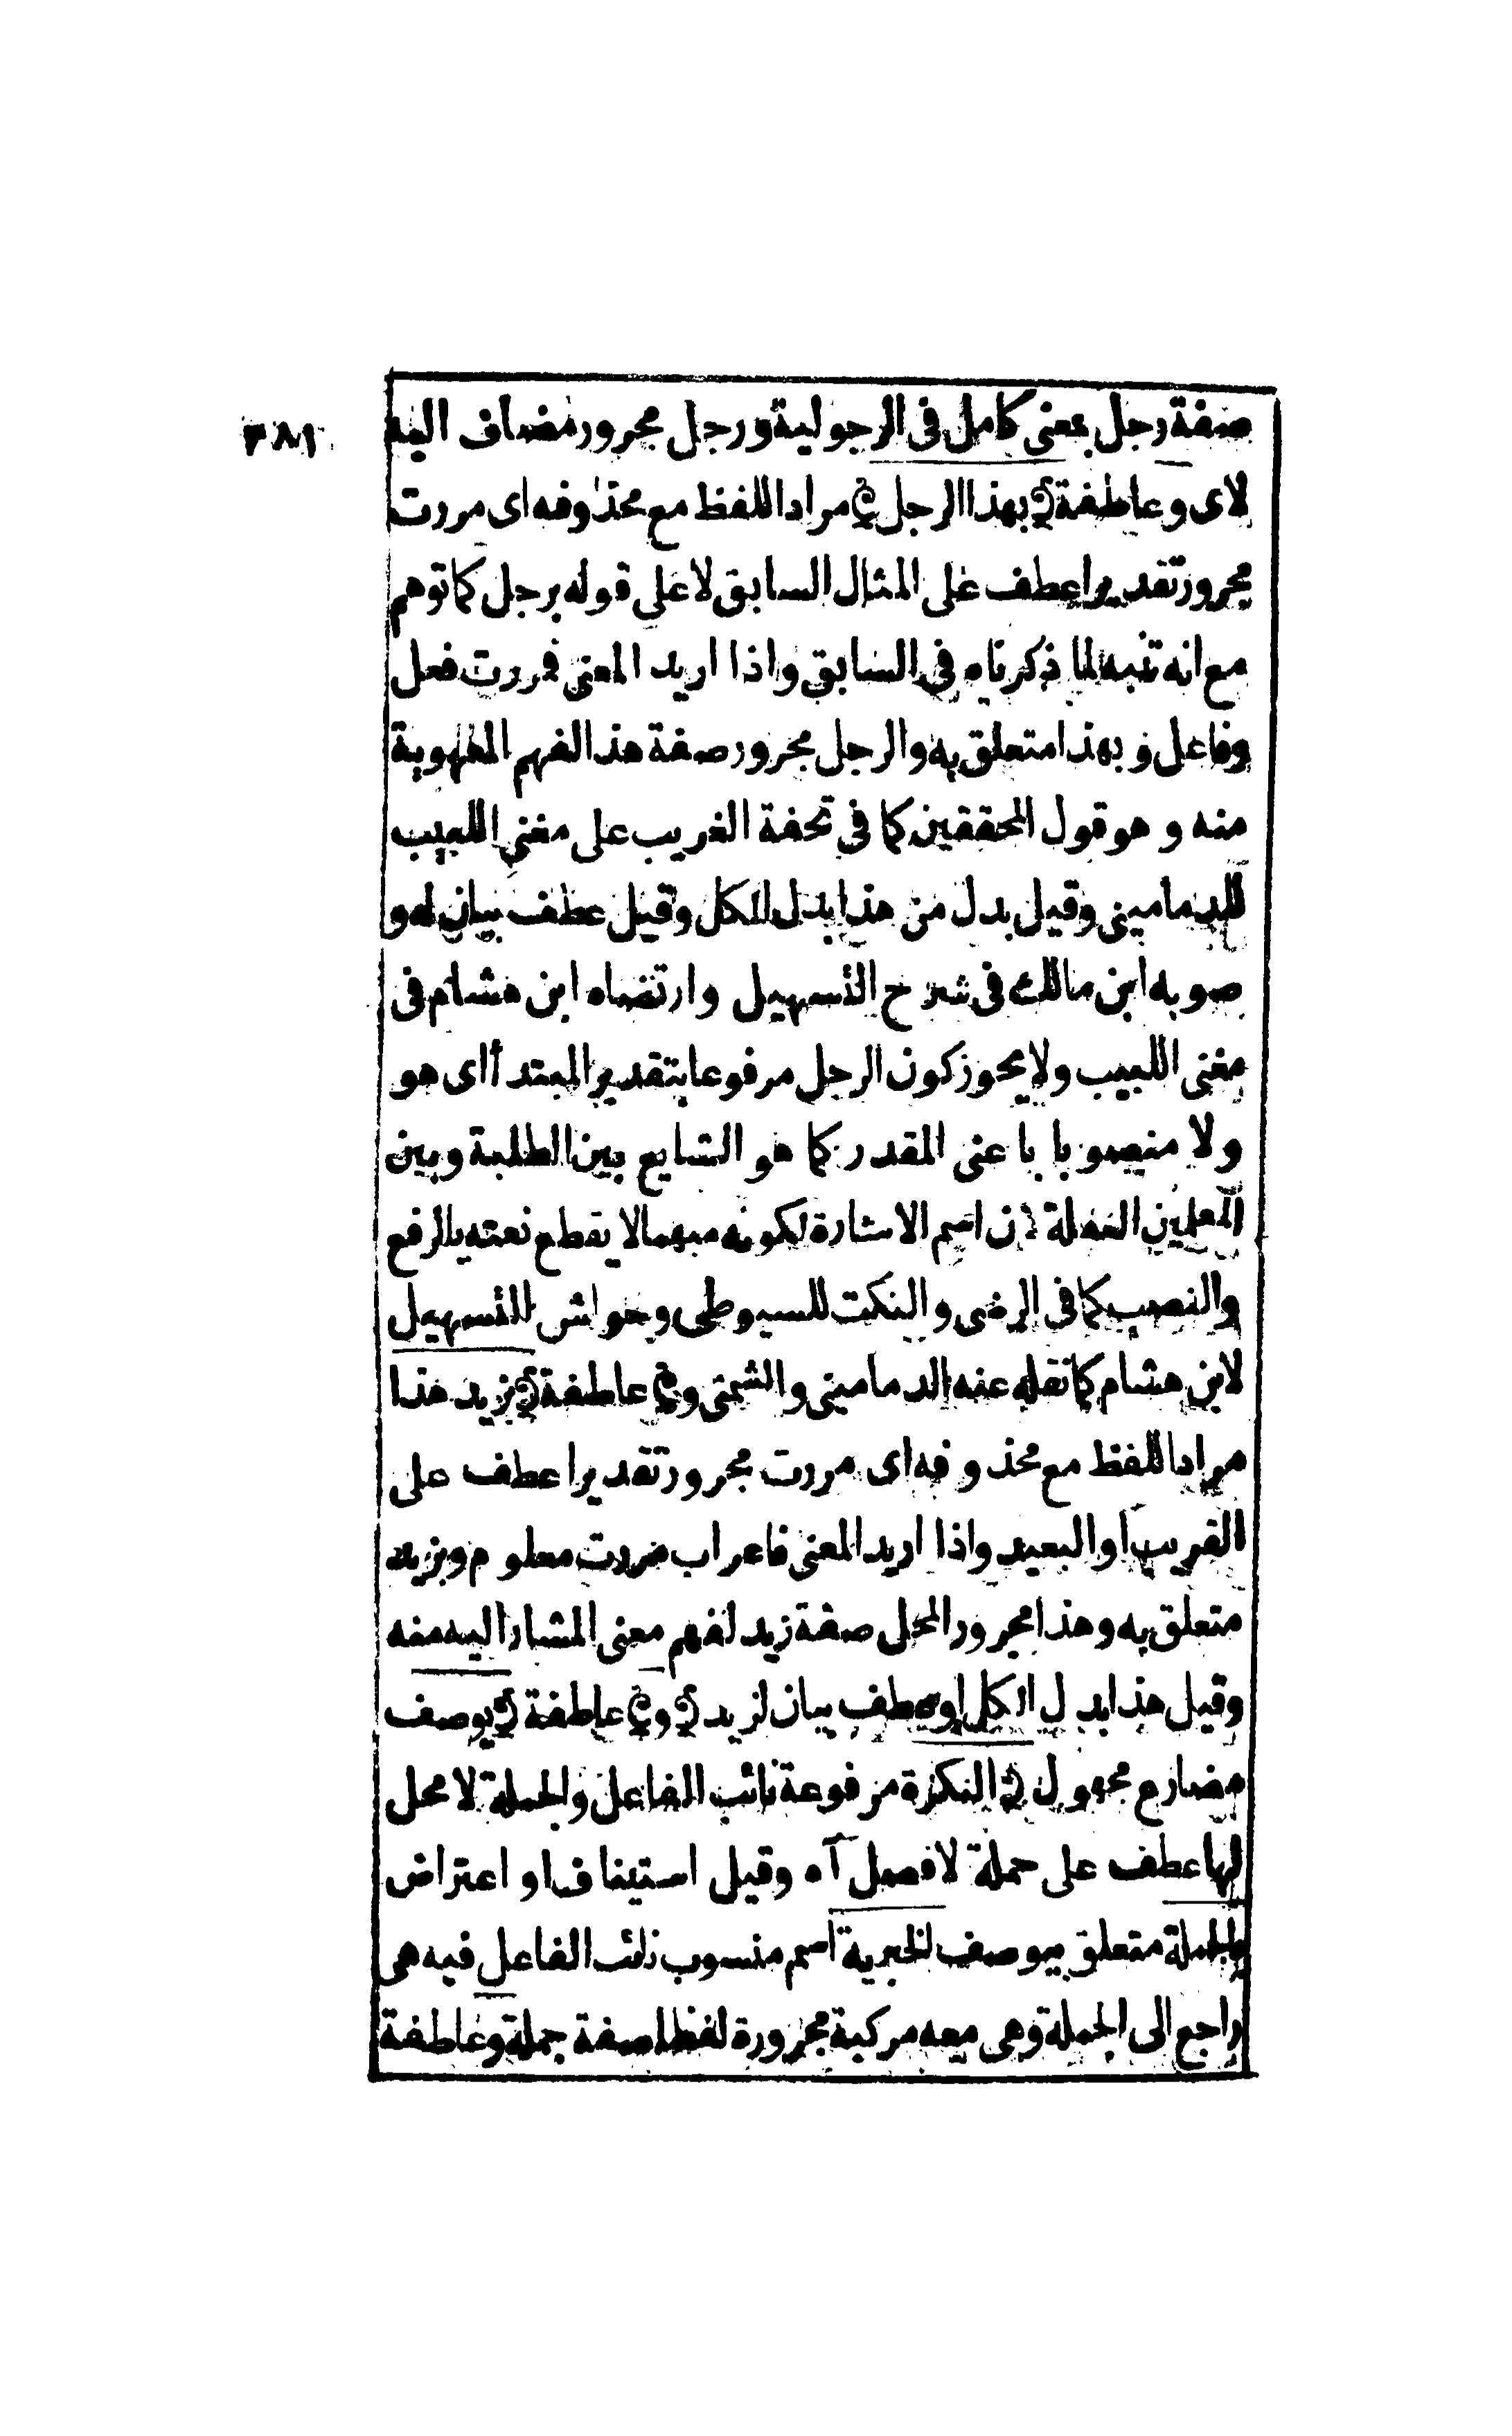 ٣٨١
صفة رجل بمعنى كامل فى الرجولية ورجل مجرور مضاف اليه
لاى و عاطفة ﴿ بهذا الرجل ﴾ مراد اللفظ مع محذوفه اى مررت
مجرور تقديرا عطف على المثال السابق لا على قوله برجل كما توهم
مع انه تنبه لما ذكرناه فى السابق واذا اريد المعنى فمررت فعل
وفاعل و بهذا متعلق به والرجل مجرور صفة هذا لفهم
منه و هو قول المحققين كما فى تحفة الغريب على مغنى اللبيب
للدمامينى وقيل بدل من هذا بدل الكل وقيل عطف بيان له و
صوبه ابن مالك فى شرح التسهيل وارتضاه ابن هشام فى
مغنى اللبيب ولا يجوز كون الرجل مرفوعا بتقدير المبتدأ اى هو
ولا منصوبا باعنى المقدر كما هو الشايع بين الطلبة وبين
المعلمين الغفلة لان اسم الاشارة لكونه مبهما لا يقطع نعته بالرفع
والنصب كما فى الرضى والنكت للسيوطى وحواش للتسهيل
لابن هشام كما نقله عنه الدمامينى والشمنى و﴾ عاطفة ﴿ بزيد هذا
مراد اللفظ مع محذوفه اى مررت مجرور تقديرا عطف على
القريب او البعيد واذا اريد المعنى فاعراب مررت معلوم وبزيد
متعلق به وهذا مجرور المحل صفة زيد لفهم معنى المشار اليه منه
وقيل هذا بدل الكل او عطف بيان لزيد ﴿ و﴾ عاطفة ﴿ يوصف
مضارع مجهول ﴿ النكرة مرفوعة نائب الفاعل والجملة لا محل
لها عطف على جملة لا فصل آه وقيل استيناف او اعتراض
بالجملة متعلق بيوصف الخبرية اسم منسوب نائب الفاعل فيه هى
راجع الى الجملة وهى معه مركبة مجرورة لفظا صفة جملة وعاطفة